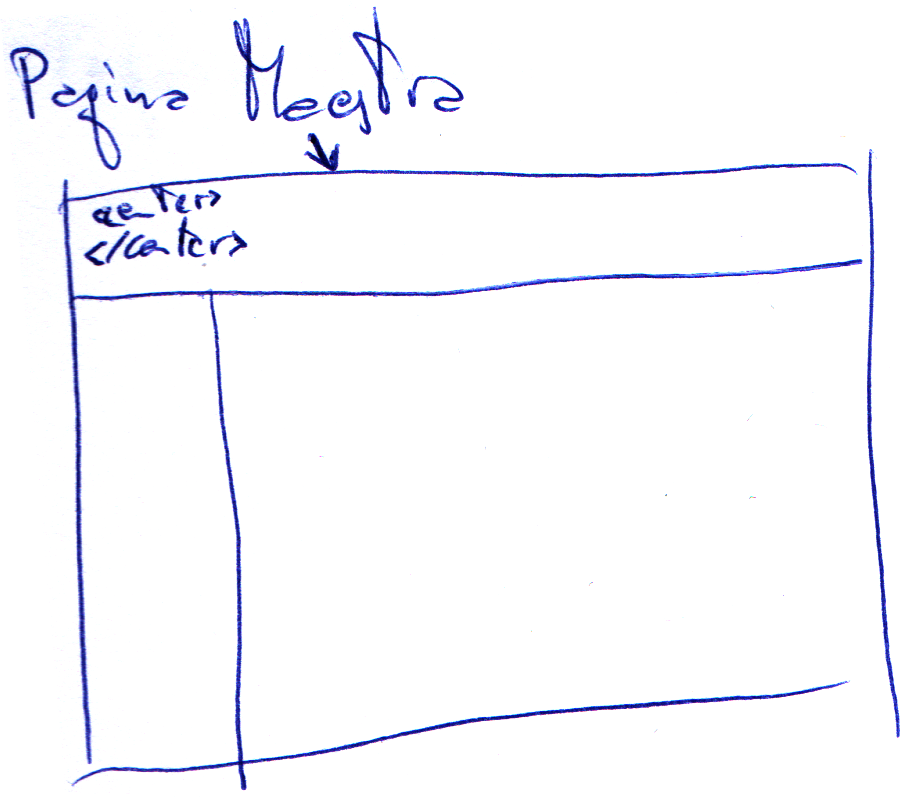 Pagina Maestra
<center>
</center>